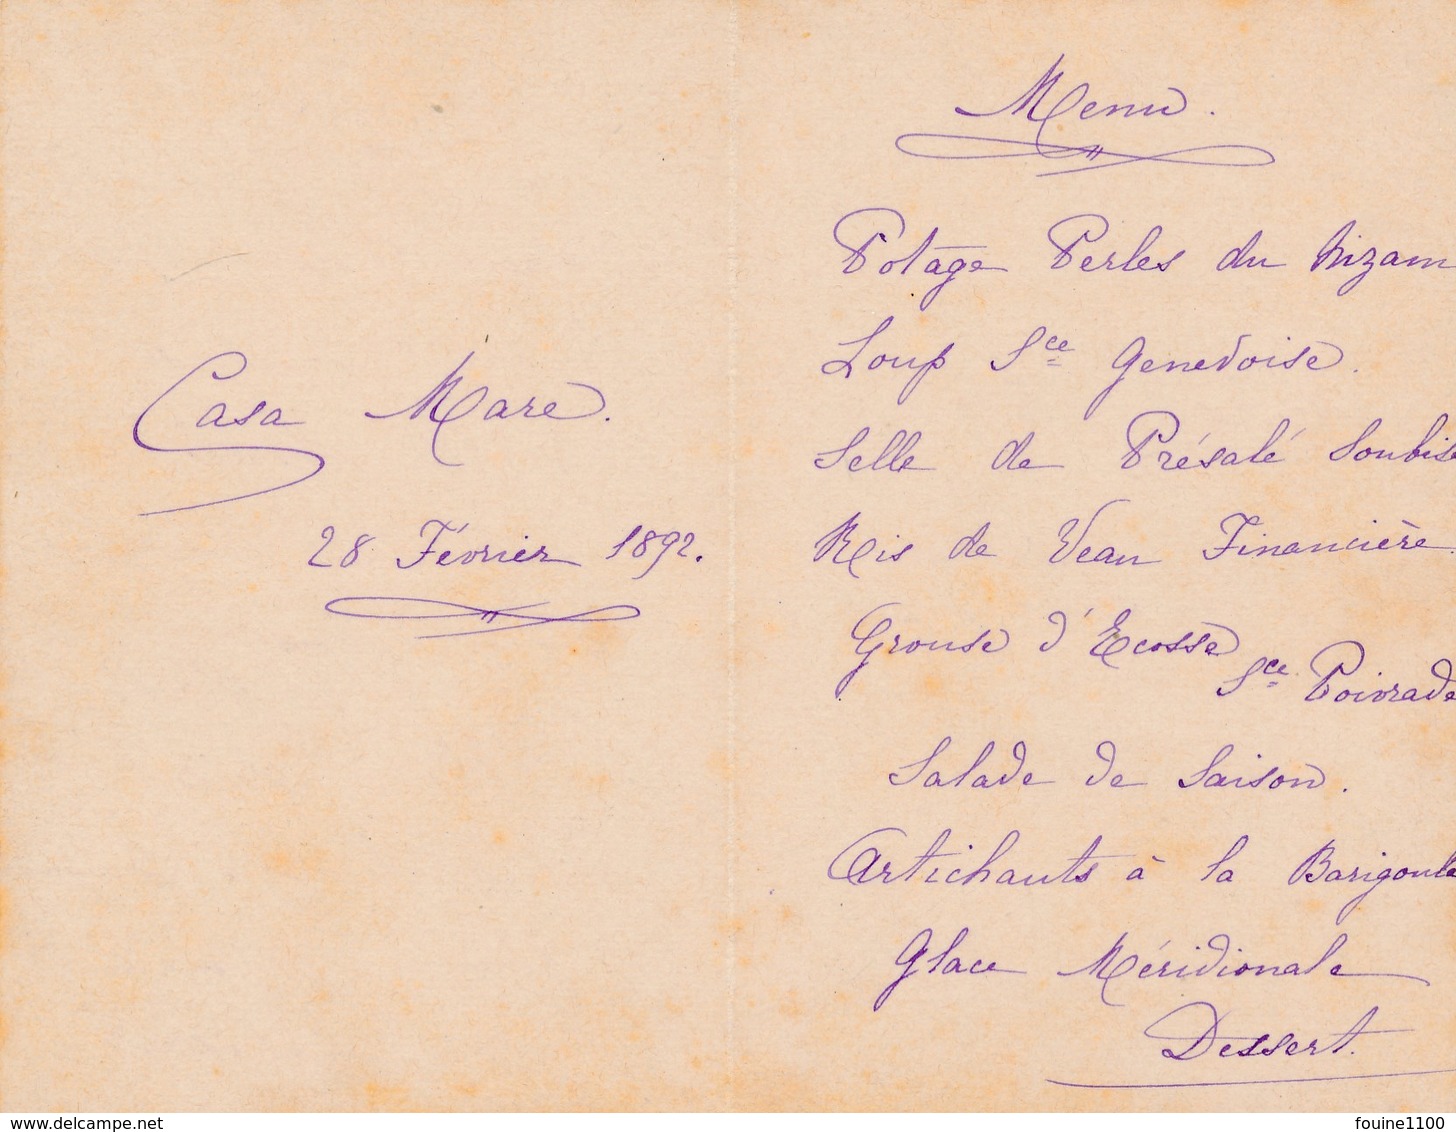 Casa Mare.
28 Février 1892.
Menu.
Potage Perles du Nizam
Loup Sce Genevoise.
Selle de Présalé Soubise
Ris de Veau Financière.
Grouse d'Ecosse
Sce Poivrade
Salade de Saison.
Artichauts à la Barigoule
Glace Méridionale
Dessert.
delcampe.net
fouine1100